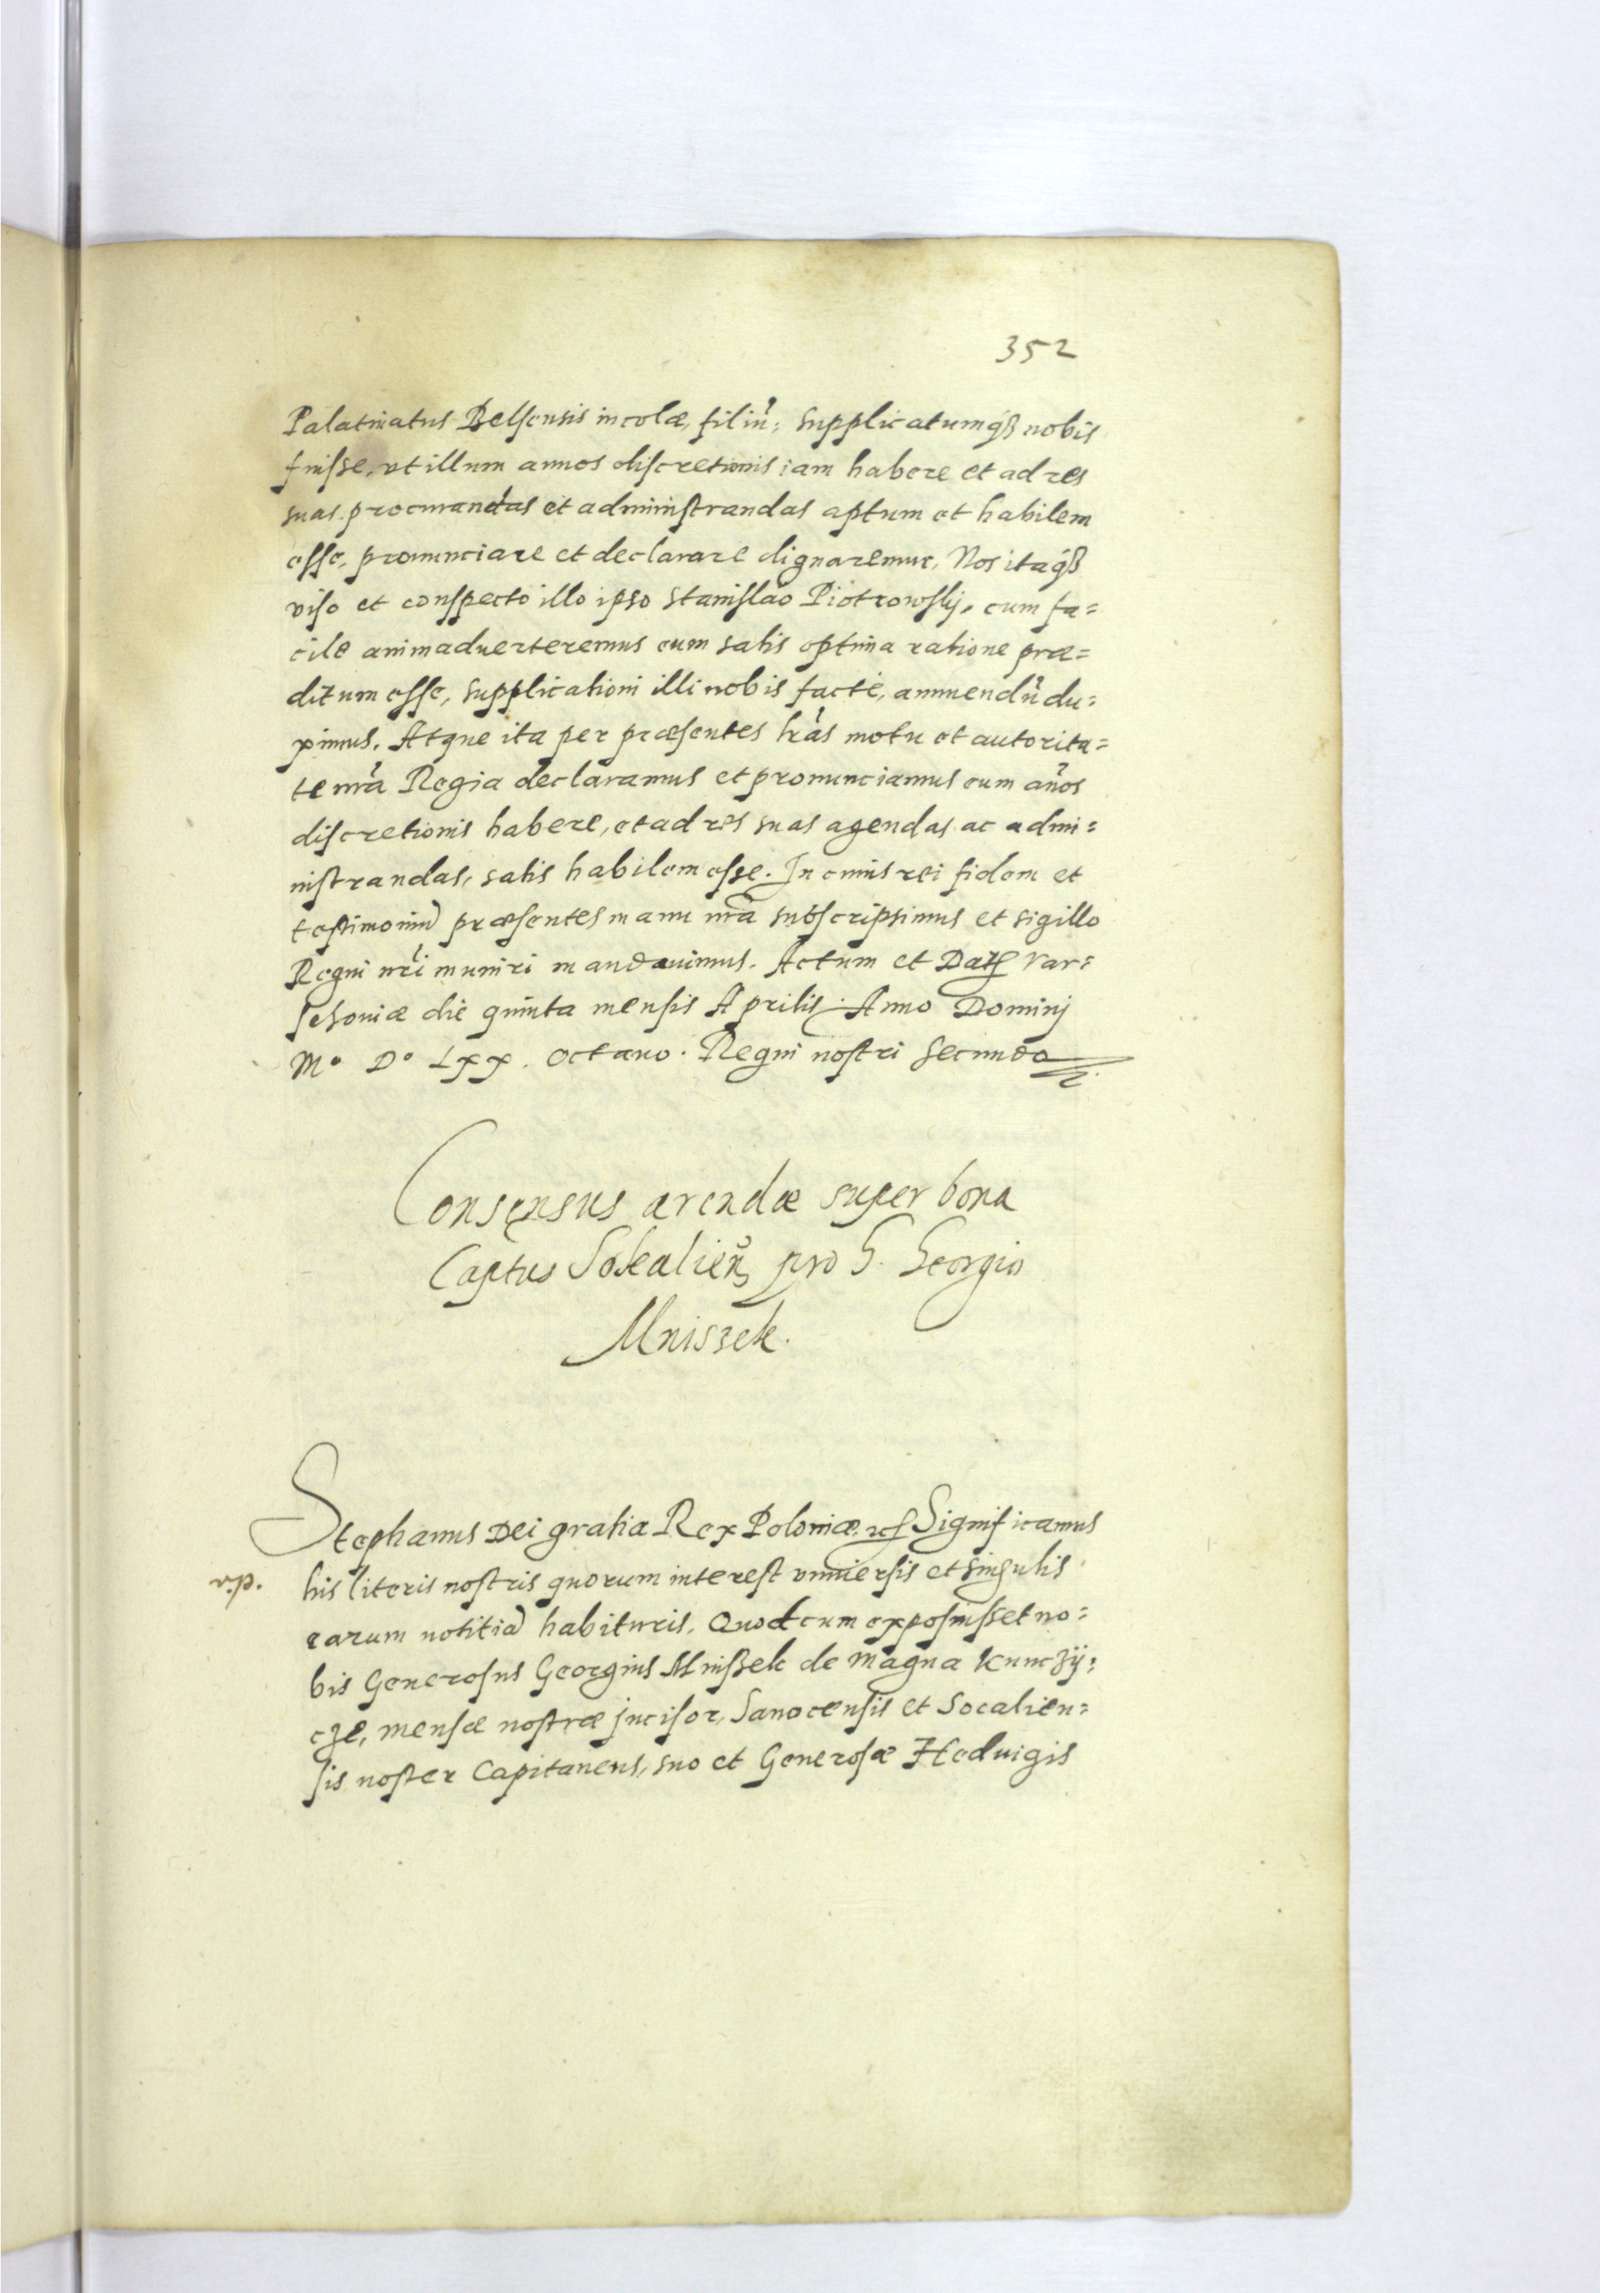 352
Palatinatus Belsensis incolæ, filiũ: supplicatumq́ꝫ nobis
fuisse, vt illum annos discretionis iam habere et ad res
suas procurandas et administrandas aptum et habilem
esse, pronunciare et declarare dignaremur. Nos itaq́ꝫ
viso et conspecto illo ipso Stanislao Piotrowskj, cum fa=
cile animaduerteremus eum satis optima ratione præ=
ditum esse, supplicationi illi nobis factæ, annuendũ du=
ximus. Atque ita per præsentes lr̃as motu et autorita=
te nr̃a Regia declaramus et pronunciamus eum años
discretionis habere, et ad res suas agendas ac admi=
nistrandas, satis habilem esse. In cuius rei fidem et
testimoniũ præsentes manu nr̃a subscripsimus et sigillo
Regni nr̃i muniri mandauimus. Actum et Datꝭ Var=
schouiæ die quinta mensis Aprilis Anno Dominj
M° D° Lxx. octauo. Regni nostri secundo
Consensus arendæ super bona
Captus Sokalieñ pro G. Georgio
Mniszek.
Stephanus Dei gratia Rex Poloniæ etc Significamus
v.p.
his literis nostris quorum interest vniuersis et singulis
earum notitiã habituris. Quod cum exposuisset no=
bis Generosus Georgius Mnißek de magna Kunczÿ=
cze, mensæ nostræ jncisor, Sanocensis et Socalien=
sis noster Capitaneus, suo et Generosæ Heduigis